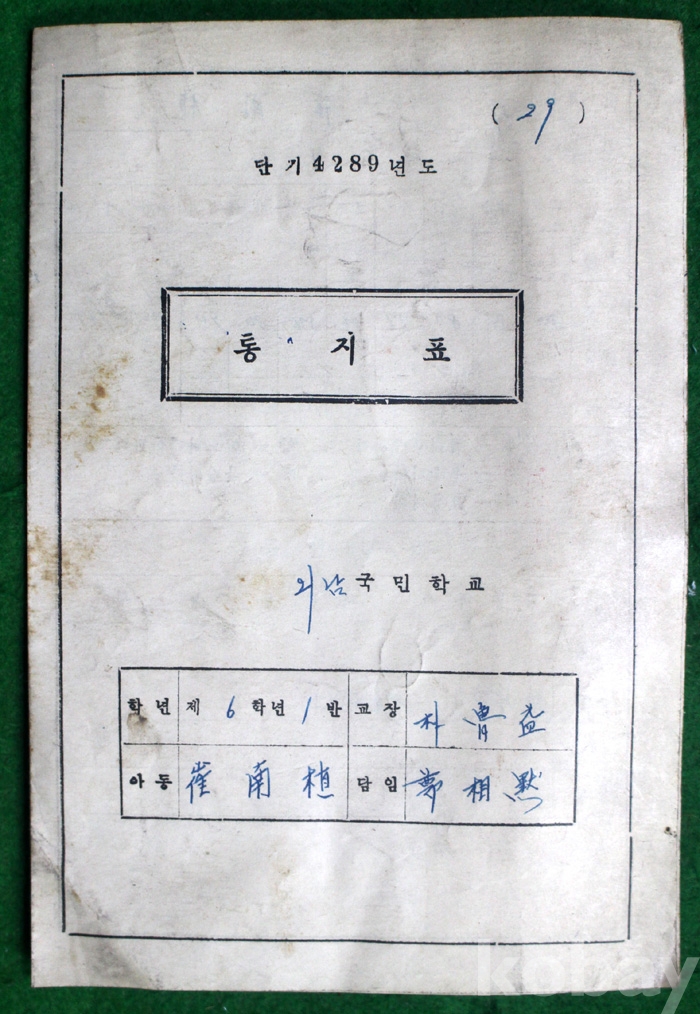 ( 29 )
단기 4289년도
통지표
외남국민학교
학년 제 6 학년 1 반 교장 朴魯益
아동 崔南植 담임 相默
kobay